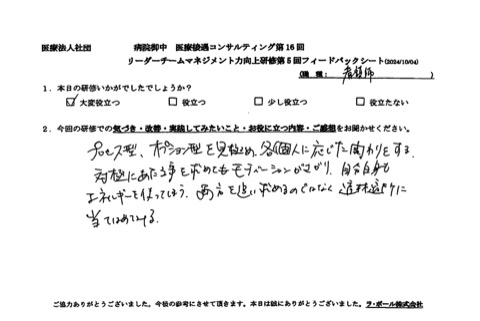 医療法人社団 病院御中 医療接遇コンサルティング第16回
リーダーチームマネジメント力向上研修第5回フィードバックシート(2024/10/04)
(職種: 看護師 )
1．本日の研修いかがでしたでしょうか？
☑ 大変役立つ □ 役立つ □ 少し役立つ □ 役立たない
2．今回の研修での気づき・改善・実践してみたいこと・お役に立つ内容・ご感想をお聞かせください。
プロセス型、オプション型を見極め、各個人に応じた関わりをする。
対極にあたる事を求めてもモチベーションがさがり、自分自身も
エネルギーを使ってしまう。両方を追い求めるのではなく適材適所に
当てはめてみる。
ご協力ありがとうございました。今後の参考にさせて頂きます。本日は誠にありがとうございました。ラ・ポール株式会社